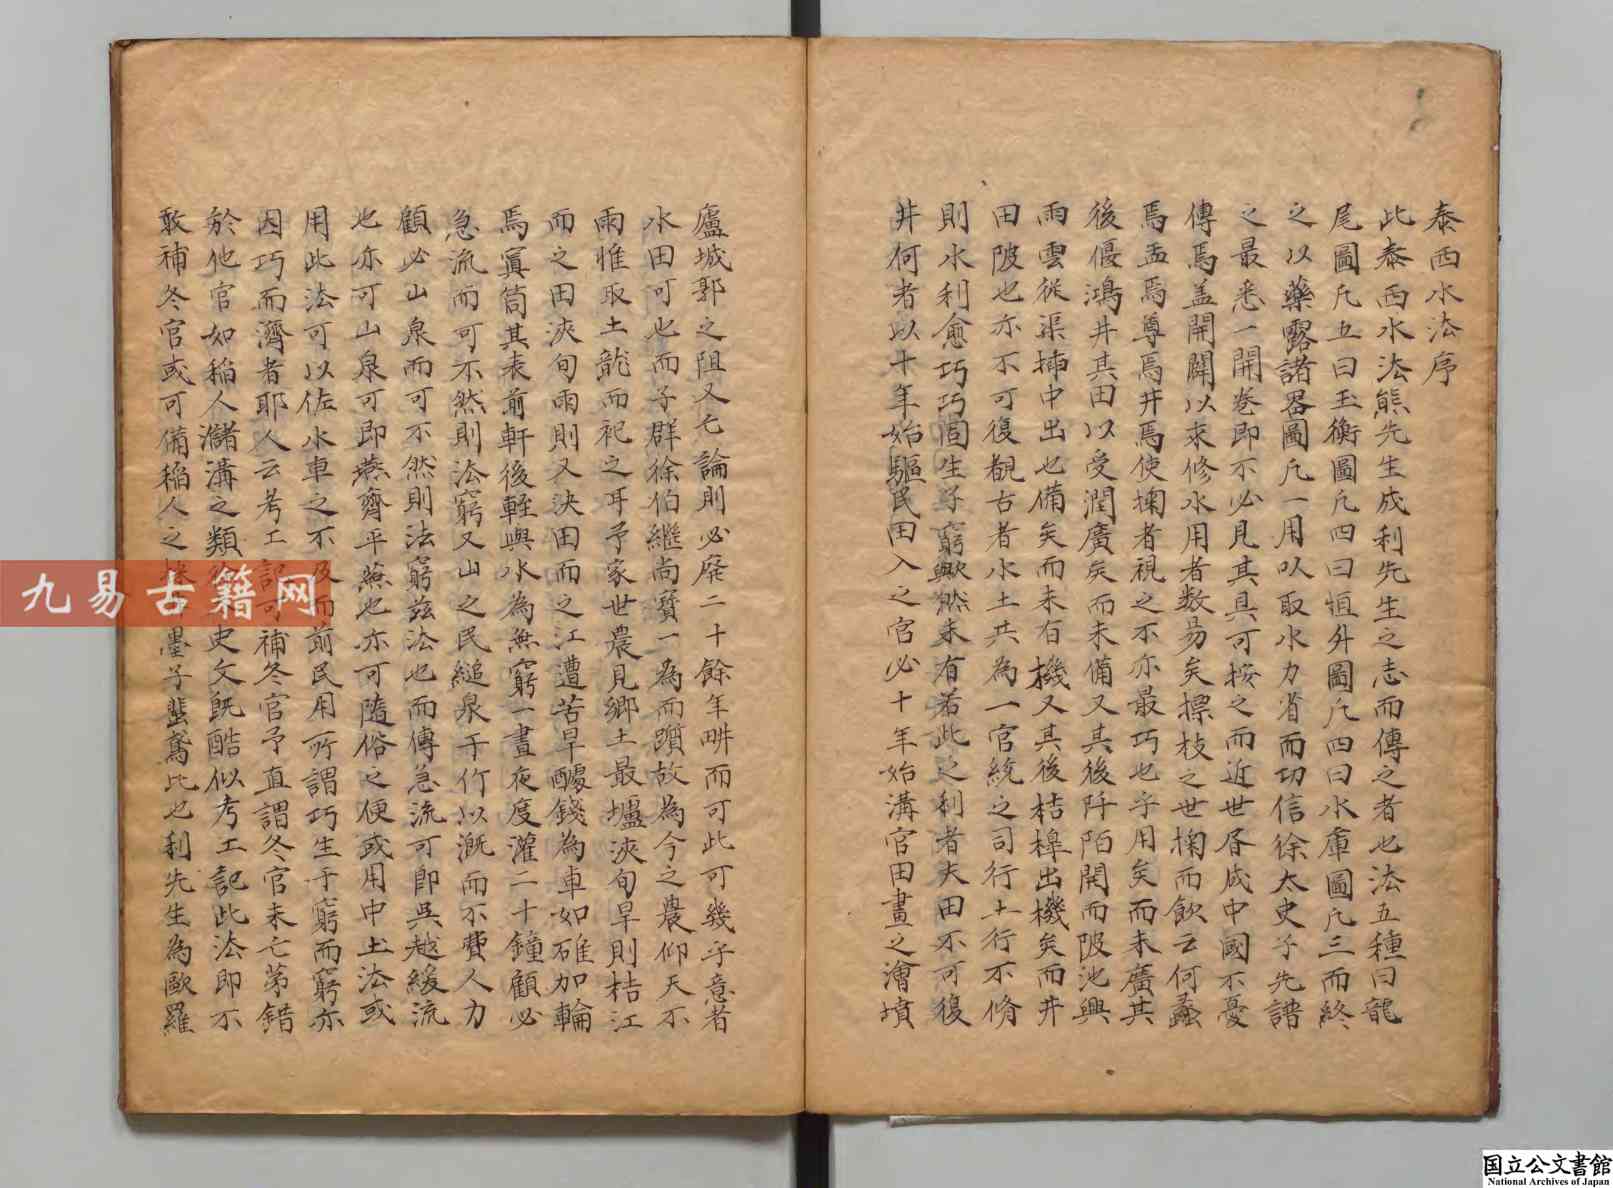 泰西水法序
此泰西水法熊先生成利先生之志而傳之者也法五種曰龍
尾圖凡五曰玉衡圖凡四曰恒升圖凡四曰水庫圖凡三而終
之以藥露諸器圖凡一用以取水力省而功信徐太史子先譜
之最悉一開卷即不必見其具可按之而近世昏成中國不憂
傳焉盖開闢以來修水用者数易矣摽枝之世掬而飲云何蠡
焉盂焉尊焉井焉使掬者視之不亦最巧也乎用矣而未廣其
後偃鴻井其田以受潤廣矣而未備又其後阡陌開而陂池興
雨雲從渠揷中出也備矣而未有機又其後桔槔出機矣而井
田陂也亦不可復覩古者水土共為一官統之司行土行不脩
則水利愈巧巧固生于窮歟然未有若此之利者夫田不可復
井何者以十年始驅民田入之官必十年始溝官田畫之澮墳
廬城郭之阻又亡論則必廢二十餘年畊而可此可幾乎意者
水田可也而子群徐伯繼尚寶一為而躓故為今之農仰天不
雨惟取土龍而祀之耳予家世農見鄉土最壚浹旬旱則桔江
而之田浹旬雨則又決田而之江遭苦旱醵錢為車如碓加輪
焉窴筒其表前軒後輊與水為無窮一晝夜度灌二十鐘顧必
急流而可不然則法窮又山之民縋泉于竹以溉而不費人力
顧必山泉而可不然則法窮兹法也而傳急流可即吳越緩流
也亦可山泉可即燕齊平蕪也亦可隨俗之便或用中土法或
用此法可以佐水車之不及而前民用所謂巧生于窮而窮亦
因巧而濟者耶人云考工記可補冬官予直謂冬官未亡苐錯
於他官如稲人瀦溝之類 史文既酷似考工記此法即不
敢補冬官或可備稲人之 墨子蜚鳶比也利先生為歐羅
九易古籍网
国立公文書館
National Archives of Japan